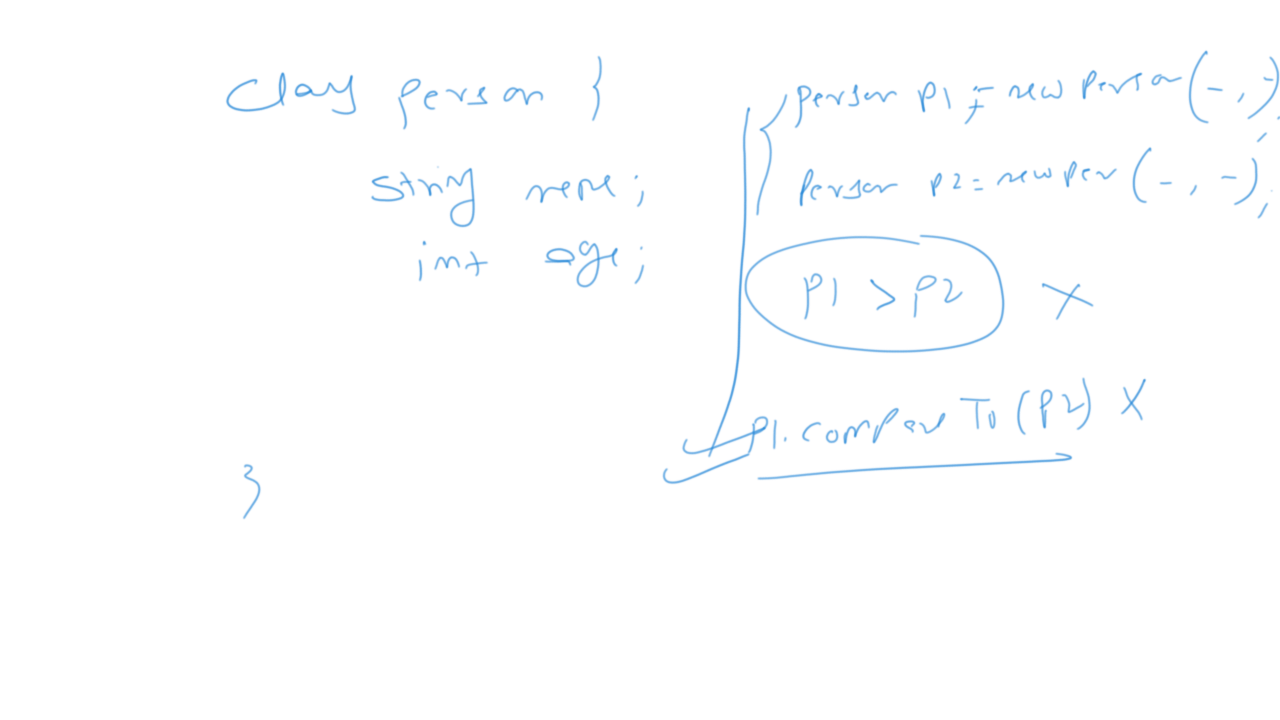 Class person {
String name;
int age;
}
person p1 = new person(-, -);
person p2 = new per(-, -);
p1 > p2 X
p1.compareTo(p2) X